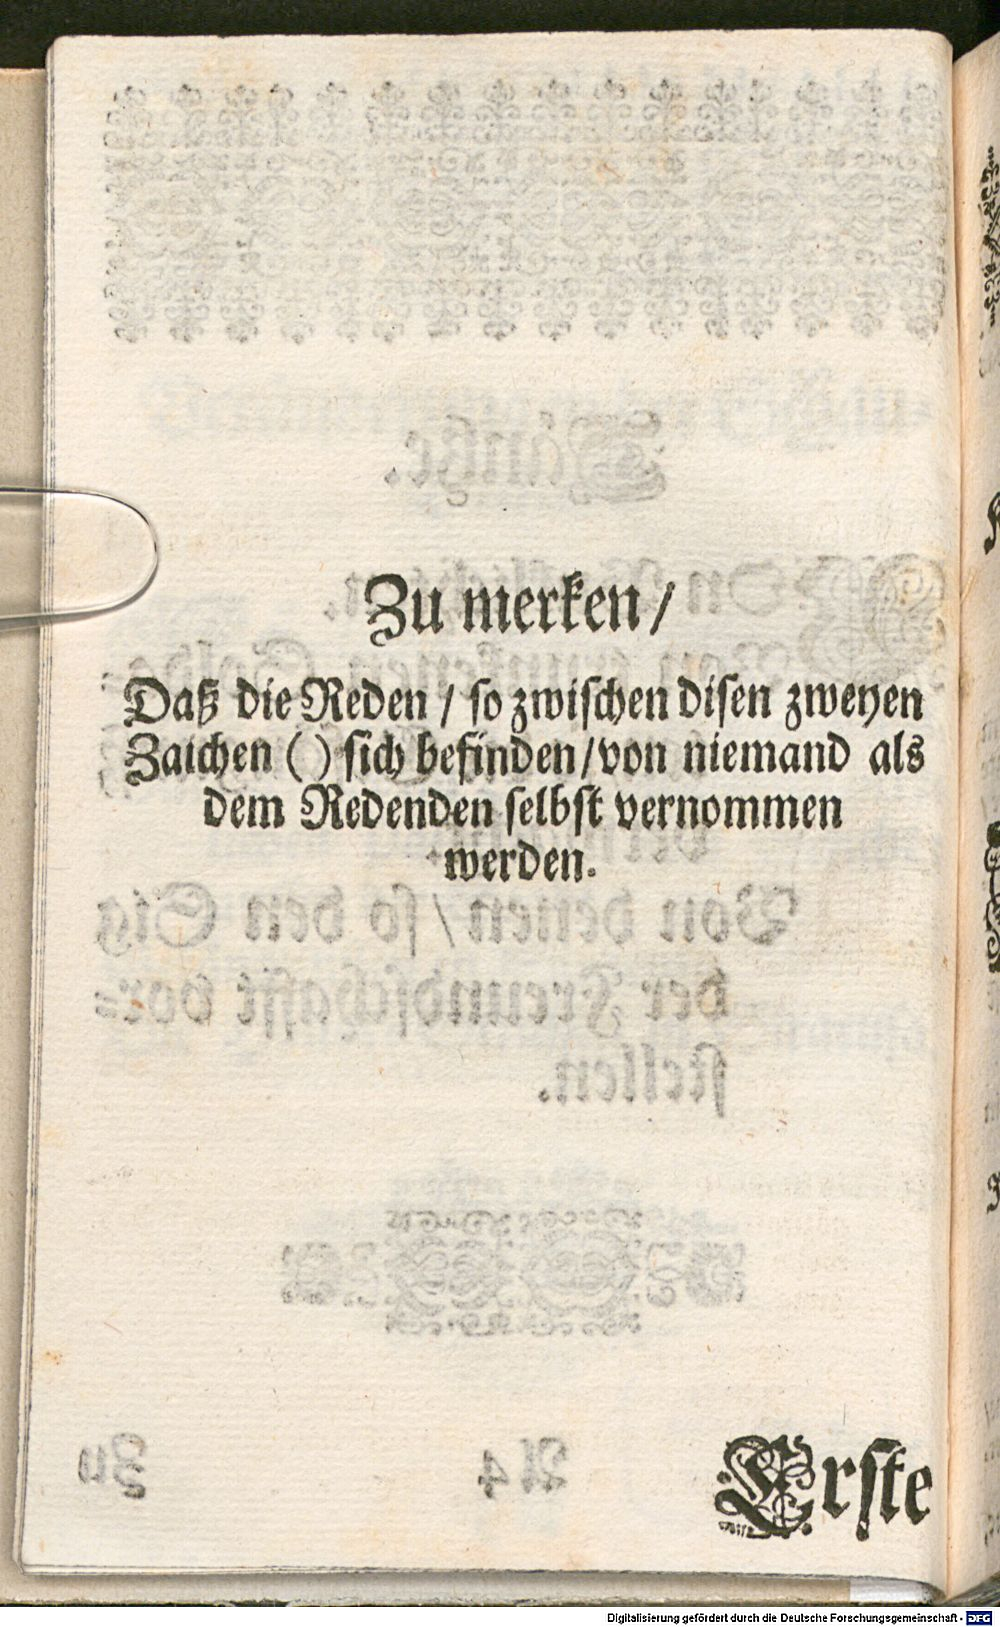 Zu merken /
Daß die Reden / so zwischen disen zweyen
Zaichen ( ) sich befinden / von niemand als
dem Redenden selbst vernommen
werden.
Erste
Digitalisierung gefördert durch die Deutsche Forschungsgemeinschaft - DFG